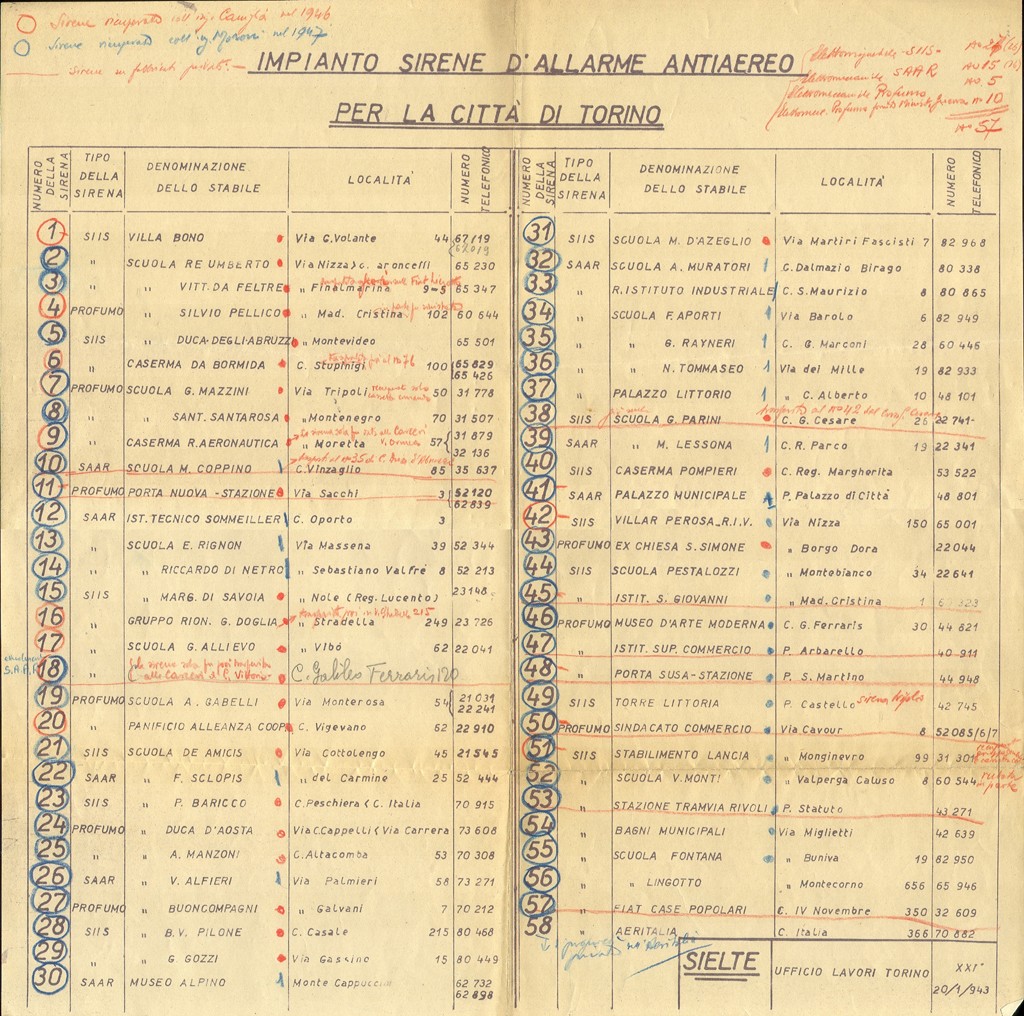 Sirene recuperate coll'ing. Caniglà nel 1946
Sirene recuperate coll'ing. Moroni nel 1947
Sirene in fabbricati privati. –
IMPIANTO SIRENE D'ALLARME ANTIAEREO
PER LA CITTÀ DI TORINO
SIIS
SAAR Nº 15
Nº 5
Profumo
Nº 10
Nº 57
NUMERO DELLA SIRENA TIPO DELLA SIRENA DENOMINAZIONE DELLO STABILE LOCALITA' NUMERO TELEFONICO
1 SIIS VILLA BONO Via G.Volante 44 67/19
2 " SCUOLA RE UMBERTO Via Nizza>c. aroncelli 65 230
3 " " VITT. DA FELTRE " Finalmarina 9-5 65 347
4 PROFUMO " SILVIO PELLICO " Mad. Cristina 102 60 644
5 SIIS " DUCA-DEGLI-ABRUZZI " Montevideo 65 501
6 " CASERMA DA BORMIDA C. Stupinigi 100 65 829
65 426
7 PROFUMO SCUOLA G. MAZZINI Via Tripoli 50 31 778
8 " " SANT. SANTAROSA " Montenegro 70 31 507
9 " CASERMA R.AERONAUTICA " Moretta 57 31 879
32 136
10 SAAR SCUOLA M. COPPINO C.Vinzaglio 85 35 637
11 PROFUMO PORTA NUOVA -STAZIONE Via Sacchi 3 52 120
62 839
12 SAAR IST. TECNICO SOMMEILLER C. Oporto 3
13 " SCUOLA E. RIGNON Via Massena 39 52 344
14 " " RICCARDO DI NETRO " Sebastiano Valfré 8 52 213
15 SIIS " MARG. DI SAVOIA " Nole (Reg. Lucento) 23148
16 " GRUPPO RION. G. DOGLIA " Stradella 249 23 726
17 " SCUOLA G. ALLIEVO " Vibó 62 22 041
18 C. Galileo Ferraris 120
S.A.A.R.
19 PROFUMO SCUOLA A. GABELLI Via Monterosa 54 21 031
22 241
20 " PANIFICIO ALLEANZA COOP. C. Vigevano 62 22 910
21 SIIS SCUOLA DE AMICIS Via Cottolengo 45 21 545
22 SAAR " F. SCLOPIS " del Carmine 25 52 444
23 SIIS " P. BARICCO C.Peschiera < C. Italia 70 915
24 PROFUMO " DUCA D'AOSTA Via C.Cappelli < Via Carrera 73 608
25 " " A. MANZONI C.Altacomba 53 70 308
26 SAAR " V. ALFIERI Via Palmieri 58 73 271
27 PROFUMO " BUONCOMPAGNI " Galvani 7 70 212
28 SIIS " B.V. PILONE C. Casale 215 80 468
29 " " G. GOZZI Via Gassino 15 80 449
30 SAAR MUSEO ALPINO Monte Cappuccini 62 732
62 898
NUMERO DELLA SIRENA TIPO DELLA SIRENA DENOMINAZIONE DELLO STABILE LOCALITA' NUMERO TELEFONICO
31 SIIS SCUOLA M. D'AZEGLIO Via Martiri Fascisti 7 82 968
32 SAAR SCUOLA A. MURATORI C.Dalmazio Birago 80 338
33 " R.ISTITUTO INDUSTRIALE C. S.Maurizio 8 80 865
34 " SCUOLA F. APORTI Via Barolo 6 82 949
35 " " G. RAYNERI C. G. Marconi 28 60 446
36 " " N. TOMMASEO Via dei Mille 19 82 933
37 " PALAZZO LITTORIO " C. Alberto 10 48 101
38 SIIS SCUOLA G. PARINI C. G. Cesare 26 22 741
39 SAAR " M. LESSONA C.R. Parco 19 22 341
40 SIIS CASERMA POMPIERI C. Reg. Margherita 53 522
41 SAAR PALAZZO MUNICIPALE P. Palazzo di Città 48 801
42 SIIS VILLAR PEROSA_R.I.V. Via Nizza 150 65 001
43 PROFUMO EX CHIESA S.SIMONE " Borgo Dora 22 044
44 SIIS SCUOLA PESTALOZZI " Montebianco 34 22 641
45 " ISTIT. S. GIOVANNI " Mad. Cristina 1
46 PROFUMO MUSEO D'ARTE MODERNA C. G. Ferraris 30 44 821
47 " ISTIT. SUP. COMMERCIO P. Arbarello 40 911
48 " PORTA SUSA-STAZIONE P. S. Martino 44 948
49 SIIS TORRE LITTORIA P. Castello 42 745
50 PROFUMO SINDACATO COMMERCIO Via Cavour 8 52 085/6/7
51 SIIS STABILIMENTO LANCIA " Monginevro 99 31 301
52 " SCUOLA V. MONTI " Valperga Caluso 8 60 544
53 " STAZIONE TRAMVIA RIVOLI P. Statuto 43 271
54 " BAGNI MUNICIPALI Via Miglietti 42 639
55 " SCUOLA FONTANA " Buniva 19 82 950
56 " " LINGOTTO " Montecorno 656 65 946
57 " FIAT CASE POPOLARI C. IV Novembre 350 32 609
58 " AERITALIA C. Italia 366 70 882
SIELTE
UFFICIO LAVORI TORINO
XXIº
20/1/943